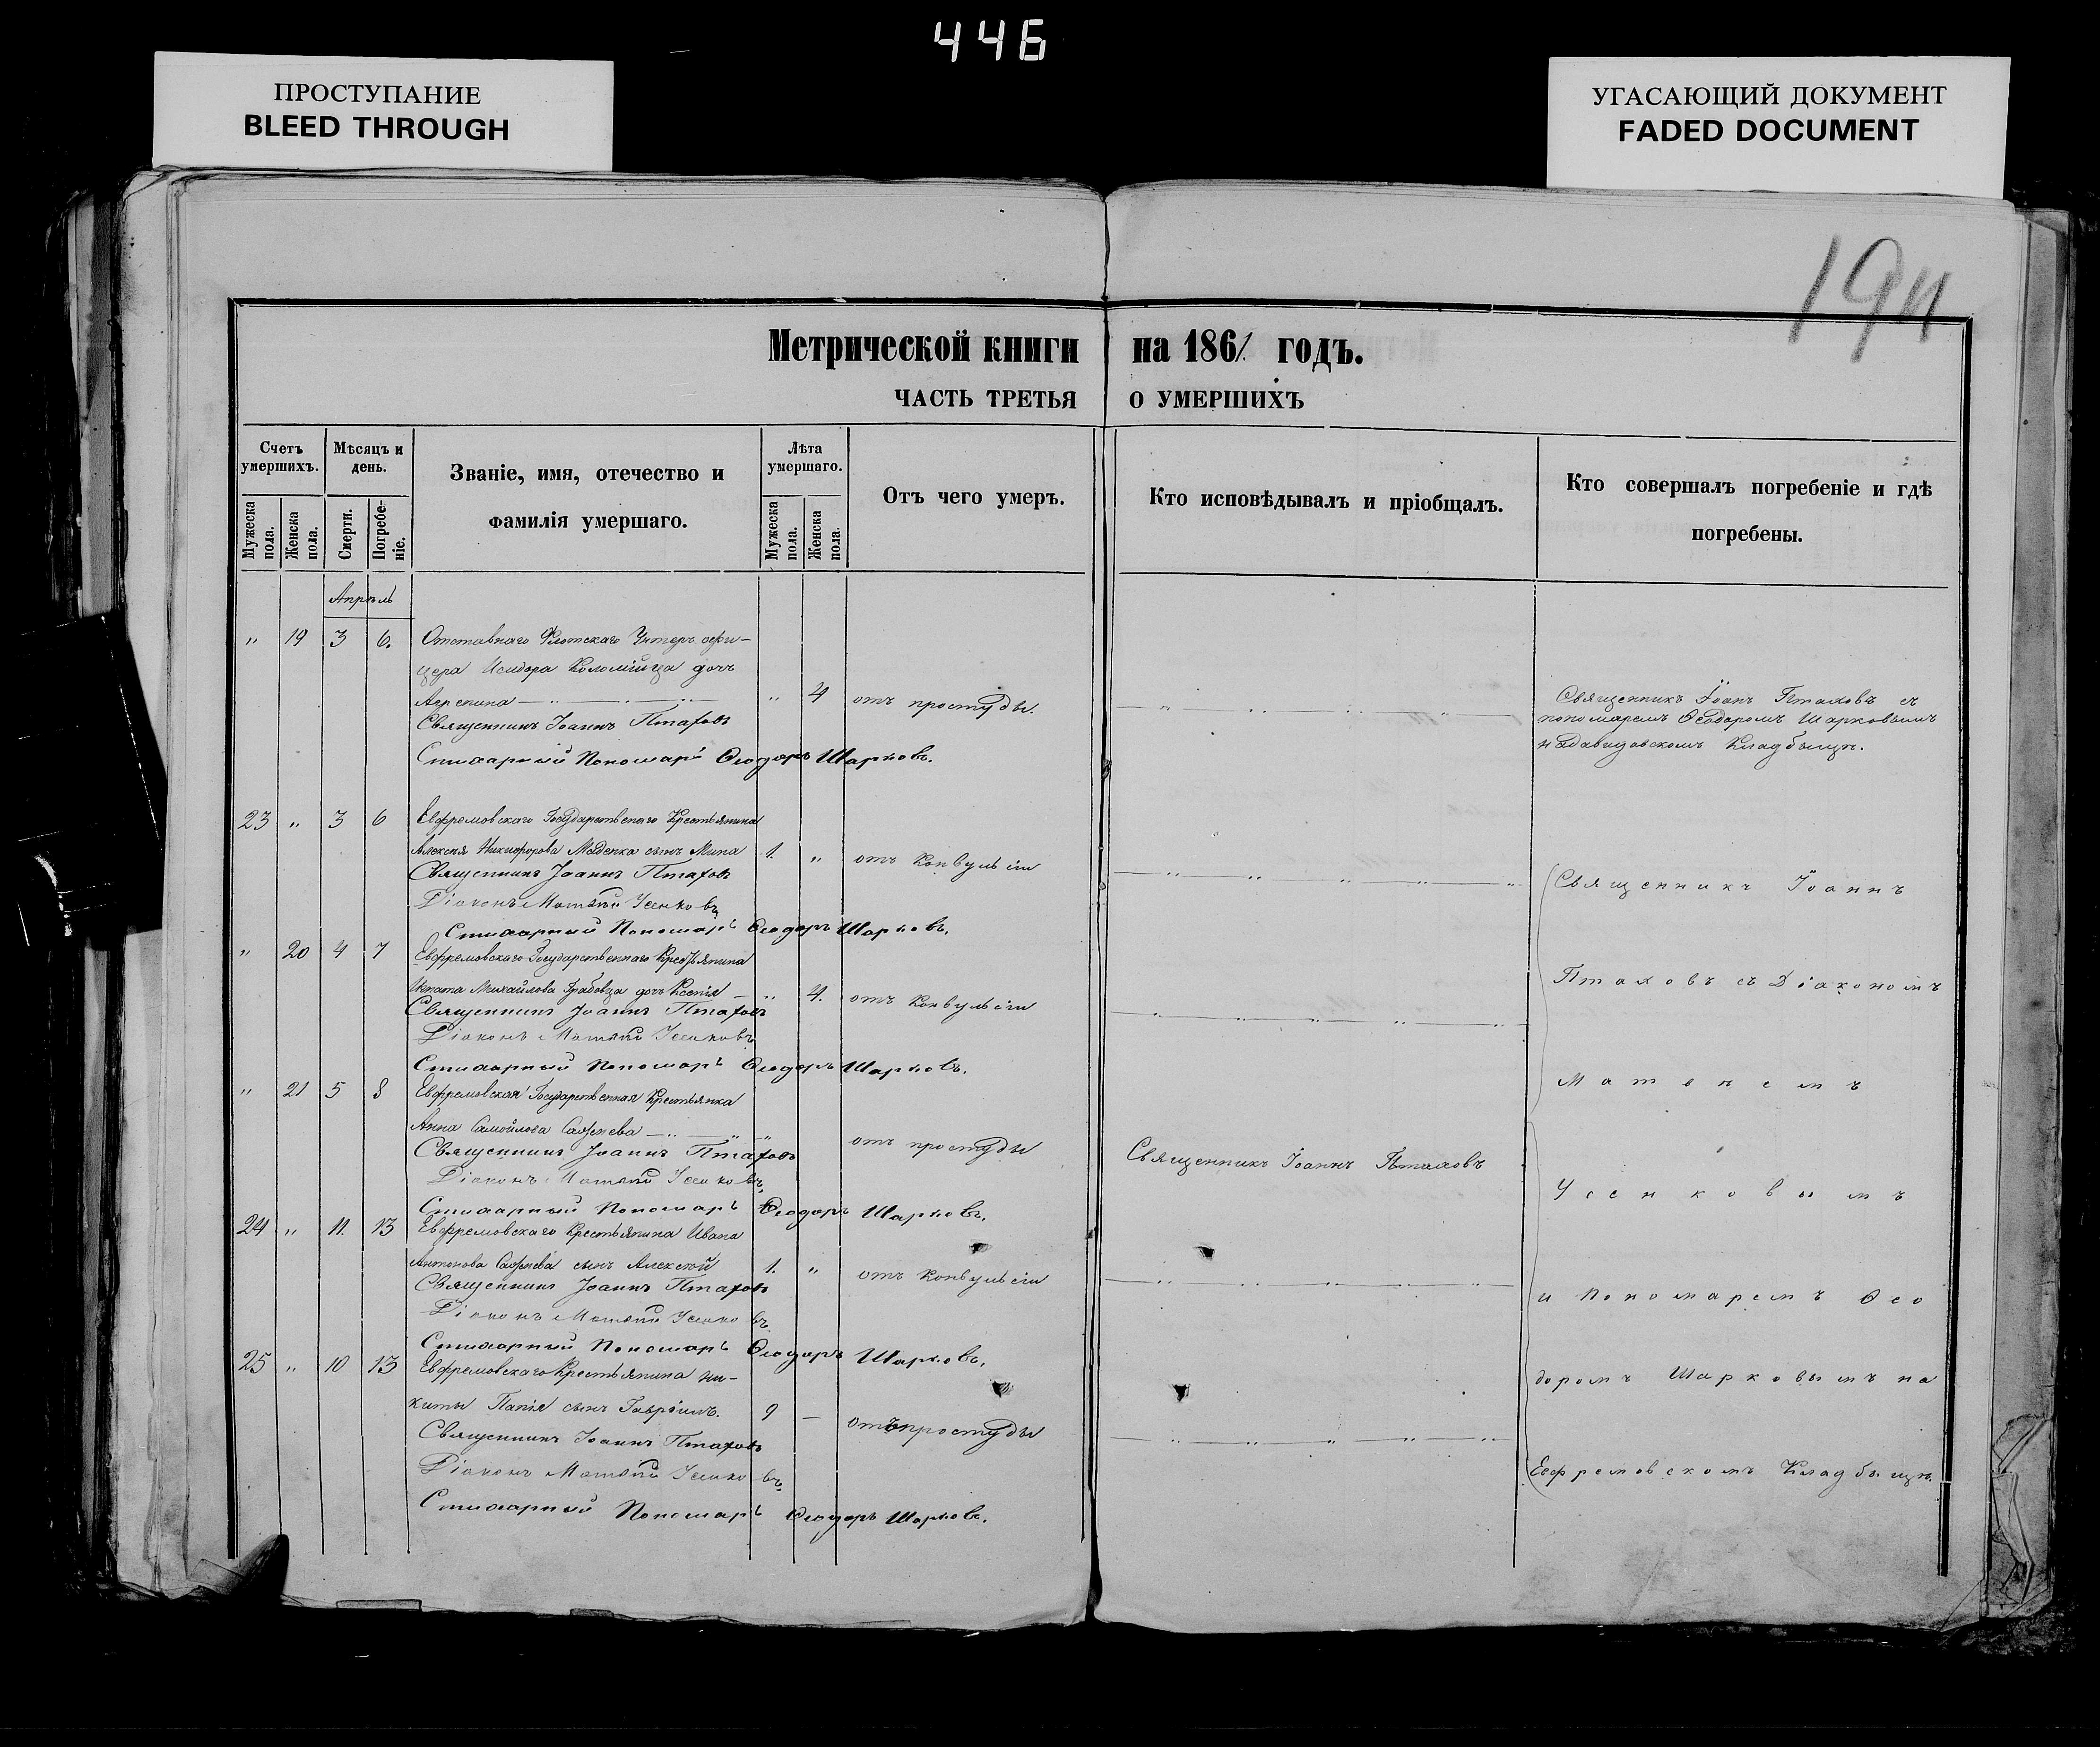 446
ПРОСТУПАНИЕ
BLEED THROUGH
УГАСАЮЩИЙ ДОКУМЕНТ
FADED DOCUMENT
Метрической книги на 1861 годъ.
ЧАСТЬ ТРЕТЬЯ О УМЕРШИХЪ
Счетъ умершихъ.
Мужеска пола.
Женска пола.
Мѣсяцъ и день.
Смерти.
Погребе-ніе.
Званіе, имя, отечество и
фамилія умершаго.
Лѣта умершаго.
Мужеска пола.
Женска пола.
Отъ чего умеръ.
Кто исповѣдывалъ и пріобщалъ.
Кто совершалъ погребеніе и гдѣ
погребены.
Апрѣль
" 19 3 6. Отставнаго Флотскаго Унтеръ офи-
цера Исидора Коломійца дочь
" 4 отъ простуды.
Священникъ Іоаннъ Птаховъ
Стихарный Пономарь Ѳеодоръ Шарковъ.
Священникъ Іоанъ Птаховъ съ
пономаремъ Ѳеодоромъ Шарковымъ
Кладбищѣ.
23 " 3 6 Ефремовскаго Государственаго Крестьянина
Алексѣя Никифорова сынъ Мина 1. " отъ Конвульсіи
Священникъ Іоаннъ Птаховъ
Діаконъ Матѳій Усенковъ
Стихарный Пономарь Ѳеодоръ Шарковъ.
" 20 4 7 Ефремовскаго Государственнаго Крестьянина
Михайлова Грабовца дочь Ксенія " 4. отъ Конвульсіи
Священникъ Іоаннъ Птаховъ
Діаконъ Матѳій Усенковъ
Стихарный Пономарь Ѳеодоръ Шарковъ.
" 21 5 8 Ефремовская Государственная Крестьянка
Анна Самойлова отъ простуды
Священникъ Іоаннъ Птаховъ
Священникъ Іоаннъ Птаховъ
Діаконъ Матѳій Усенковъ
Стихарный Пономарь Ѳеодоръ Шарковъ.
24 " 11. 13 Ефремовскаго Крестьянина Ивана
Антонова сынъ Алексѣй 1. " отъ Конвульсіи
Священникъ Іоаннъ Птаховъ
Діаконъ Матѳій Усенковъ
Стихарный Пономарь Ѳеодоръ Шарковъ.
25 " 10 13 Ефремовскаго Крестьянина Ни-
киты Папія сынъ Гавріилъ. 9 — отъ простуды
Священникъ Іоаннъ Птаховъ
Діаконъ Матѳій Усенковъ
Стихарный Пономарь Ѳеодоръ Шарковъ.
Священникъ Іоаннъ
Птаховъ съ Діакономъ
Матѳеемъ
Усенковымъ
и Пономаремъ Ѳео
доромъ Шарковымъ на
Ефремовскомъ Кладбищѣ.